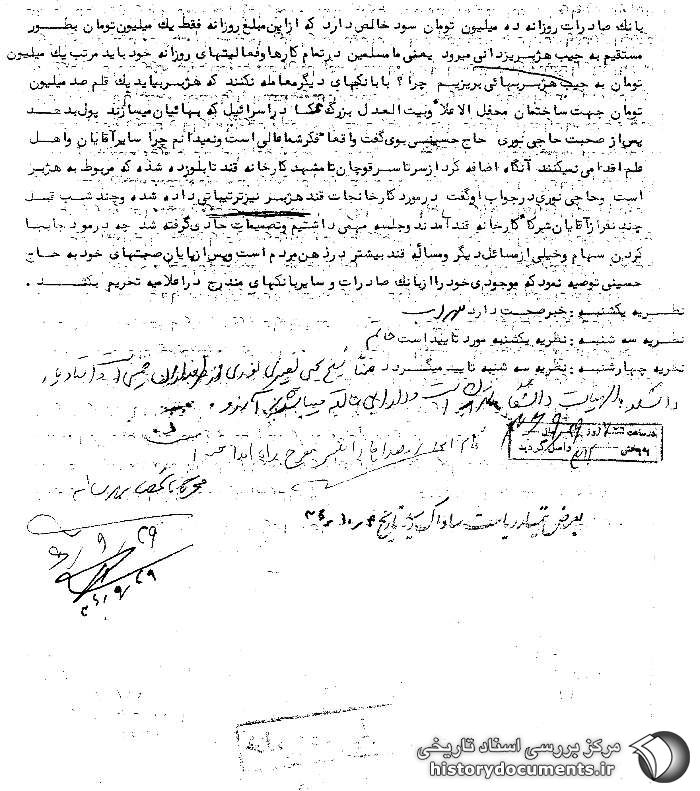 بانك صادرات روزانه ده میلیون تومان سود خالص دارد كه از این مبلغ روزانه فقط یك میلیون تومان بطور
مستقیم به جیب هژبر یزدانی میرود یعنی ما مسلمین در تمام كارها و فعالیتهای روزانه خود باید مرتب یك میلیون
تومان به جیب هژبر بهائی بریزیم چرا ؟ با بانكهای دیگر معامله نكنند كه هژبر بیاید یك قلم صد میلیون
تومان جهت ساختمان محفل الاعلا و بیت العدل بزرگ عكا در اسرائیل كه بهائیان میسازند پول بدهد
پس از صحبت حاجی نوری حاج حسینی بوی گفت واقعا" فكر شما عالی است و نمیدانم چرا سایر آقایان و اهل
علم اقدامی نمیكنند آنگاه اضافه كرد از سرتاسر قوچان تا مشهد كارخانه قند تابلو زده شده كه مربوط به هژبر
است و حاجی نوری در جواب او گفت در مورد كارخانجات قند هژبر نیز ترتیباتی داده شده و چند شب قبل
چند نفر از آقایان شركا" كارخانه قند آمدند و جلسه مهمی داشتیم و تصمیمات حادی گرفته شد چه در مورد جابجا
كردن سهام و خیلی از مسائل دیگر و مسأله قند بیشتر در ذهن مردم است و پس از پایان صحبتهای خود به حاج
حسینی توصیه نمود كه موجودی خود را از بانك صادرات و سایر بانكهای مندرج در اعلامیه تحریم بكند .
نظریه یكشنبه : خبر صحت دارد سهراب
نظریه سه شنبه : نظریه یكشنبه مورد تایید است خاتم
نظریه چهارشنبه : نظریه سه شنبه تایید میگردد ضمنا شیخ یحیی نصیری نوری از طرفداران خمینی است و استاد
دانشكده الهیات دانشگاه
بخش
واصل گردید
بعرض تیمسار ریاست ساواك رسید تاریخ
۲۹ / ۹ /
مركز بررسی اسناد تاریخی
historydocuments.ir